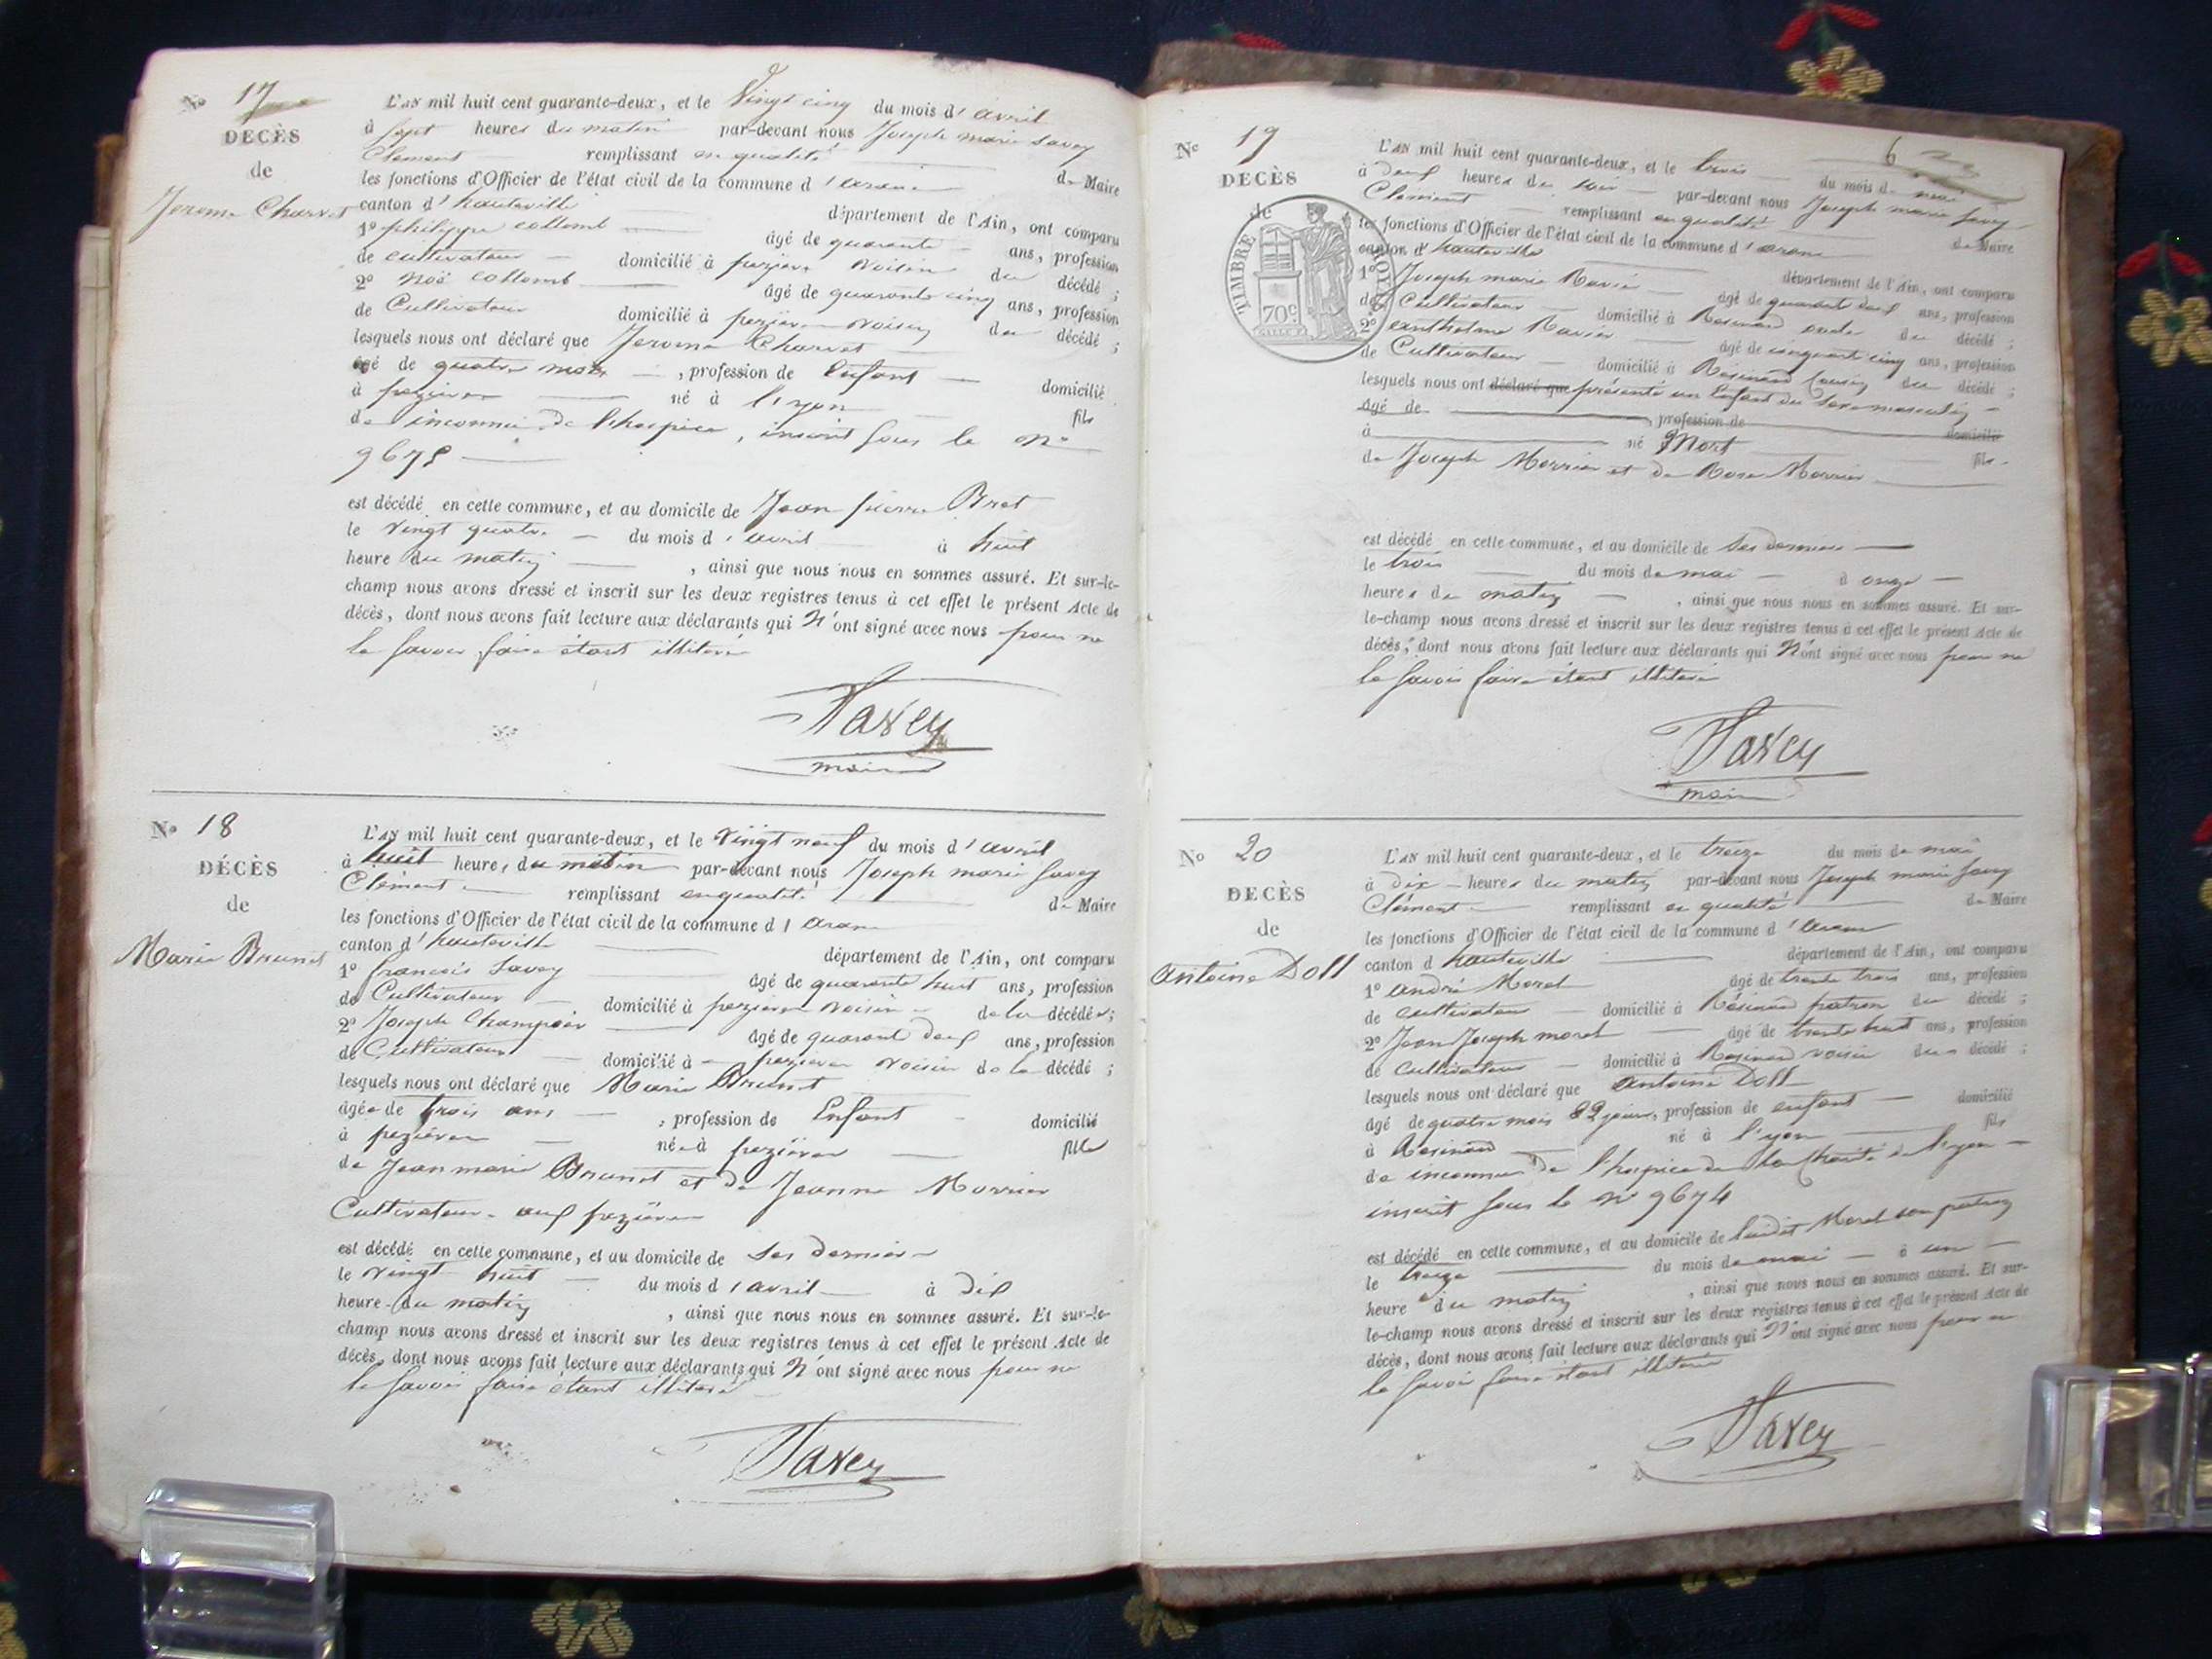 No 17
DECÈS
de
Jerome Charvet
L'AN mil huit cent quarante-deux, et le vingt cinq du mois d'avril
à sept heures du matin par-devant nous Joseph marie Savey
Clement remplissant en qualité de Maire
les fonctions d'Officier de l'état civil de la commune d'aranc
canton d'hauteville département de l'Ain, ont comparu
1o philippe collomb âgé de quarante ans, profession
de cultivateur domicilié à pezières voisin du décédé ;
2o noë collomb âgé de quarante cinq ans, profession
de Cultivateur domicilié à pezières voisin du décédé ;
lesquels nous ont déclaré que Jerome Charvet
agé de quatre mois, profession de Enfant domicilié
à pezières né à l'yon fils
de inconnu de l'hospice, inscrit sous le No
9675
est décédé en cette commune, et au domicile de Jean pierre Bret
le vingt quatre du mois d'avril à huit
heure du matin, ainsi que nous nous en sommes assuré. Et sur-le-
champ nous avons dressé et inscrit sur les deux registres tenus à cet effet le présent Acte de
décès, dont nous avons fait lecture aux déclarants qui N'ont signé avec nous pour ne
le savoir faire étant illiteré
Savey
maire
No 18
DÉCÈS
de
Marie Brunet
L'AN mil huit cent quarante-deux, et le vingt neuf du mois d'avril
à huit heures du matin par-devant nous Joseph marie Savey
Clément remplissant en qualité de Maire
les fonctions d'Officier de l'état civil de la commune d'aranc
canton d'hauteville département de l'Ain, ont comparu
1o françois Savey âgé de quarante huit ans, profession
de Cultivateur domicilié à pezieres voisin de la décédée ;
2o Joseph Champion âgé de quarante deux ans, profession
de Cultivateur domicilié à pezieres voisin de la décédé ;
lesquels nous ont déclaré que Marie Brunet
âgée de trois ans, profession de Enfant domicilié
à pezières née à pezières fille
de Jean marie Brunet et de Jeanne Morrier
Cultivateur aux pezières
est décédé en cette commune, et au domicile de ses derniers
le vingt huit du mois d'avril à dix
heure du matin, ainsi que nous nous en sommes assuré. Et sur-le-
champ nous avons dressé et inscrit sur les deux registres tenus à cet effet le présent Acte de
décès, dont nous avons fait lecture aux déclarants qui N'ont signé avec nous pour ne
le savoir faire étant illiteré
Savey
6
No 19
DECÈS
de
TIMBRE ROYAL
70c
L'AN mil huit cent quarante-deux, et le trois du mois de mai
à deux heures du soir par-devant nous Joseph marie Savey
Clément remplissant en qualité de Maire
les fonctions d'Officier de l'état civil de la commune d'aranc
canton d'hauteville département de l'Ain, ont comparu
1o Joseph marie Ravier âgé de quarante deux ans, profession
de Cultivateur domicilié à Résinand oncle du décédé ;
2o anthelme Ravier âgé de cinquante cinq ans, profession
de Cultivateur domicilié à Résinand cousin du décédé ;
lesquels nous ont déclaré que présenté un Enfant du sexe masculin
âgé de, profession de domicilié
à né Mort fils
de Joseph Morrier et de Rose Morrier
est décédé en cette commune, et au domicile de ses derniers
le trois du mois de mai à onze
heures du matin, ainsi que nous nous en sommes assuré. Et sur-
le-champ nous avons dressé et inscrit sur les deux registres tenus à cet effet le présent Acte de
décès, dont nous avons fait lecture aux déclarants qui N'ont signé avec nous pour ne
le savoir faire étant illiteré
Savey
maire
No 20
DECÈS
de
antoine Doll
L'AN mil huit cent quarante-deux, et le treize du mois de mai
à dix heures du matin par-devant nous Joseph marie Savey
Clément remplissant en qualité de Maire
les fonctions d'Officier de l'état civil de la commune d'aranc
canton d hauteville département de l'Ain, ont comparu
1o andré Morel âgé de trente trois ans, profession
de cultivateur domicilié à Résinand patron du décédé ;
2o Jean Joseph morel âgé de trente huit ans, profession
de cultivateur domicilié à Résinand voisin du décédé ;
lesquels nous ont déclaré que antoine Doll
âgé de quatre mois 22 jours, profession de enfant domicilié
à Résinand né à l'yon fils
de inconnu de l'hospice de la charité de l'yon
inscrit sous le No 9674
est décédé en cette commune, et au domicile de laudit Morel son patron
le treize du mois de mai à un
heure du matin, ainsi que nous nous en sommes assuré. Et sur-
le-champ nous avons dressé et inscrit sur les deux registres tenus à cet effet le présent Acte de
décès, dont nous avons fait lecture aux déclarants qui N'ont signé avec nous pour ne
le savoir faire étant illiteré
Savey